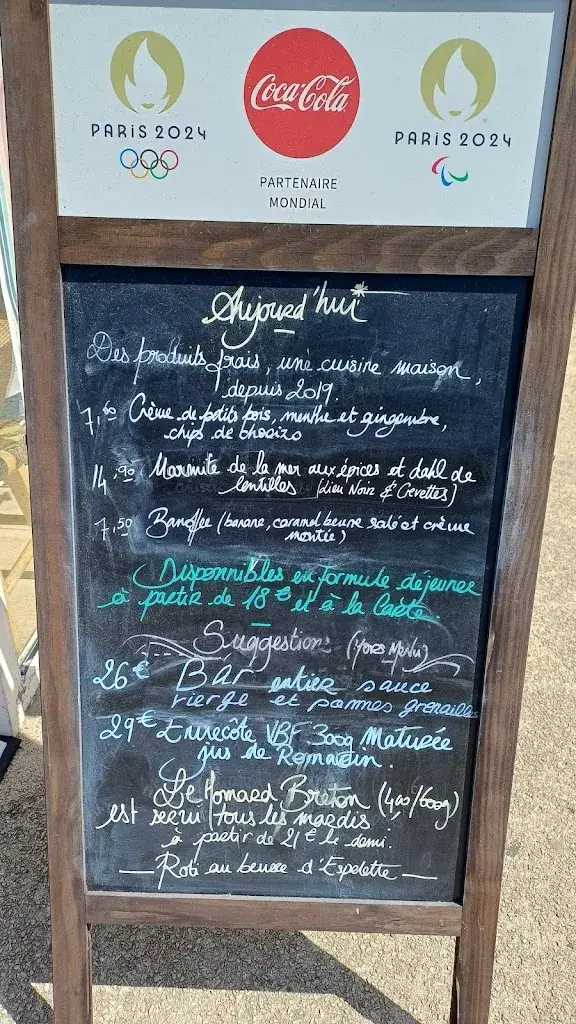 PARIS 2024
Coca-Cola
PARTENAIRE
MONDIAL
PARIS 2024
Aujourd'hui
Des produits frais, une cuisine maison,
depuis 2019.
7,60 Crème de petits pois, menthe et gingembre,
chips de chorizo
14,90 Marmite de la mer aux épices et dahl de
lentilles (Lieu Noir & Crevettes)
7,50 Banoffee (banane, caramel beurre salé et crème
montée)
Disponnibles en formule déjeuner
à partir de 18€ et à la Carte.
Suggestions (Hors Menu)
26€ Bar entier sauce
vierge et pommes grenailles
29€ Entrecôte VBF 300g Maturée
jus de Romarin.
Le Homard Breton (400/600g)
est servi tous les mardis
à partir de 21€ le demi.
Roti au beurre d'Espelette